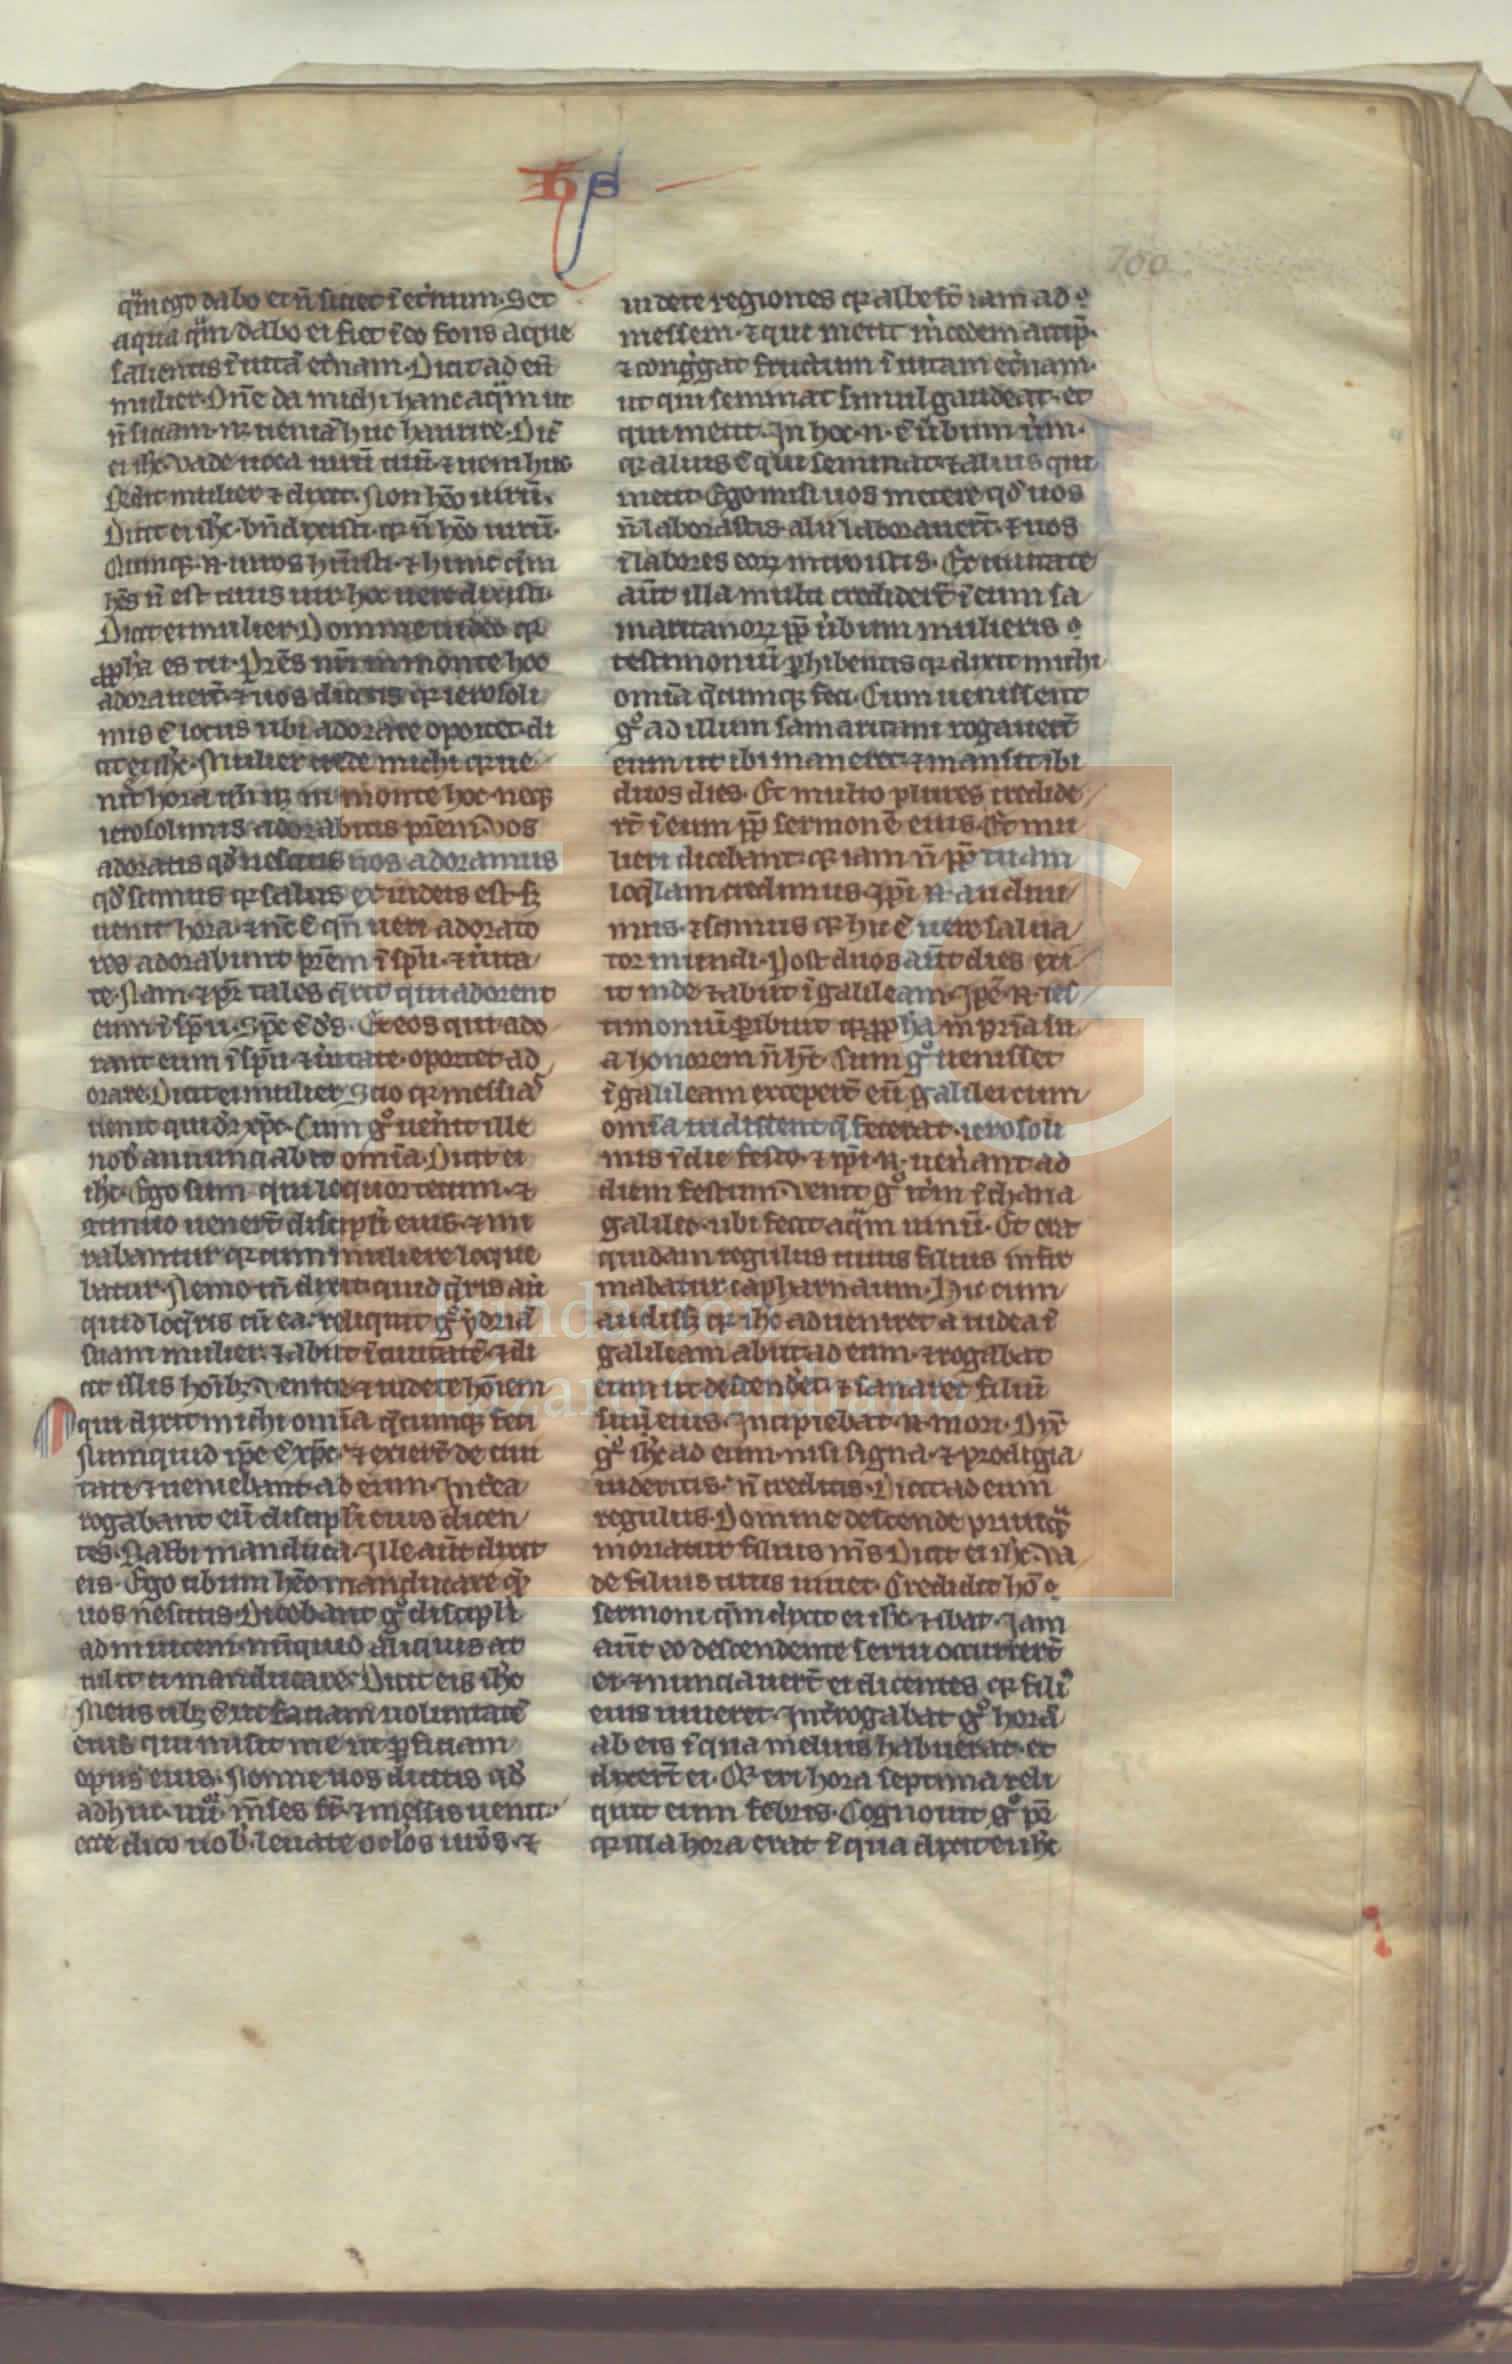 hs
700
qm̃ ego dabo ei ñ siciet ĩ et̃num. Set
aqua qm̃ dabo ei fiet ĩ eo fons aque
salientis ĩ uitã et̃nam. Dicit ad eũ
mulier. Dñe da michi hanc aq̃m ut
ñ siciam. nz ueniã huc haurire. Dic̃
ei ihc̃. Vade uoca uirũ tuũ. ⁊ ueni huc
Rñdit mulier ⁊ dixit. Non hẽo uirũ.
Dicit ei ihc̃. bñ dixisti. qr ñ hẽo uirũ.
Quinqz .n. uiros huĩsti. ⁊ hunc quẽm
hẽs ñ est tuus uir hoc uere dixisti.
Dicit ei mulier. Domine uideo qr
ppha es tu. Pr̃es nr̃i in monte hoc
adorauer̃t. ⁊ uos dicitis qr ierosoli
mis ẽ locus ubi adorare oportet. di
cit ei ihc̃. Mulier crede michi qr ue
nit hora cũ nqz in monte hoc neqz
ierosolimis adorabitis pr̃em. Vos
adoratis qd̃ nescitis nos adoramus
qd̃ scimus qr salus ex iudeis est. sz
uenit hora. ⁊ nc̃ ẽ qñ ueri adorato
res adorabunt pr̃em ĩ sp̃u. ⁊ ũita
te. Nam ⁊ pr̃ tales querit qui adorent
eum ĩ sp̃u. Sp̃c ẽ ds̃. Et eos qui ado
rant eum ĩ sp̃u ⁊ ũitate. oportet ad
orare. Dicit ei mulier. Scio qr messias
uenit qui dr̃ xp̃c. Cum gº uen̾it ille
nob̾ annunciabit omĩa. Dicit ei
ihc̃. Ego sum qui loquor tecum. ⁊
9tinuo uener̃t discipli eius. ⁊ mi
rabantur qr cum muliere loque
batur. Nemo tñ dixit quid q̃ris aũ
quid loq̃ris cũ ea. reliquit gº ydriã
suam mulier. ⁊ abiit ĩ ciuitatẽ. ⁊ di
cit illis hoĩbz. Venite ⁊ uidete hoĩem
qui dixit michi omĩa q̃cumqz feci
Numquid ip̃e ẽ xp̃c. ⁊ exier̃t de ciui
tate. ⁊ ueniebant ad eum. Int̾ea
rogabant eũ discipli eius dicen
tes. Rabbi manduca. Ille aũt dixit
eis. Ego cibum hẽo manducare qm̃
uos nescitis. Dicebant gº discipli
ad inuicem. nũquid aliquis at
tulit ei manducare. Dicit eis ihc̃
Meus cibz ẽ ut faciam uoluntatẽ
eius qui misit me ut p̃ficiam
opus eius. Nonne uos dicitis qd̃
adhuc .iiii. m̃ses st̃. ⁊ messis uenit.
ecce dico uob̾. leuate oclos ur̃os. ⁊
uidete regiones qr albe st̃ iam ad
messem. ⁊ qui metit m̾cedem accip̃.
⁊ cong̾gat fructum ĩ uitam et̃nam.
ut qui seminat simul gaudeat. et
qui metit. In hoc .n. ẽ ũbum ũm.
qr alius ẽ qui seminat. ⁊ alius qui
metit. Ego misi uos metere qd̃ uos
ñ laborastis. alii laborauer̃t. ⁊ uos
ĩ labores eorz introistis. Ex ciuitate
aũt illa multi credider̃t ĩ eum sa
maritanorz pp̃ ũbum mulieris
testimoniũ p̃hibentis qr dixit michi
omĩa q̃cumqz feci. Cum uenissent
gº ad illum samaritani rogauer̃t
eum ut ibi maneret. ⁊ mansit ibi
duos dies. Et multo plures credide
rt̃ ĩ eum pp̃ sermonẽ eius. Et mu
lieri dicebant. qr iam ñ pp̃ tuam
loq̃lam credimus. Ip̃i .n. audiui
mus. ⁊ scimus qr hic ẽ uere salua
tor mundi. Post duos aũt dies exi
it inde ⁊ abiit ĩ galileam. Ip̃e .n. ies
timoniũ p̃ibuit qr ppha ĩ pr̃ia su
a honorem ñ ht̃. Cum gº uenisset
ĩ galileam exceper̃t eũ galilei cum
omĩa uidissent q̃ fecerat. ierosoli
mis ĩ die festo. ⁊ ip̃i .n. uen̾ant ad
diem festum. Venit gº it̾m ĩ chana
galilee. ubi fecit aq̃m uinũ. Et erat
quidam regulus cuius filius infir
mabatur capharnaum. Hic cum
audissz qr ihc̃ adueniret a iudea ĩ
galileam abiit ad eum. ⁊ rogabat
eum ut descend̾et. ⁊ sanaret filiũ
suũ eius. Incipiebat .n. mori. Dix̃
gº ihc̃ ad eum. nisi signa. ⁊ prodigia
uideritis. ñ creditis. Dicit ad eum
regulus. Domine descende priusq̃
moriatur filius ms̃. Dicit ei ihc̃. Va
de filius tuus uiuit. Credidit hõ
sermoni quẽm dixit ei ihc̃. ⁊ ibat. Iam
aũt eo descendente serui occurrer̃t
ei. ⁊ nunciauer̃t ei dicentes qr fili9
eius uiueret. Int̾rogabat gº horã
ab eis ĩ qua melius habuerat. et
dixer̃t ei. Qr eri hora septima reli
quit eum febris. Cognouit gº pr̃
qr illa hora erat ĩ qua dixit ei ihc̃
Fundación
Lázaro Galdiano